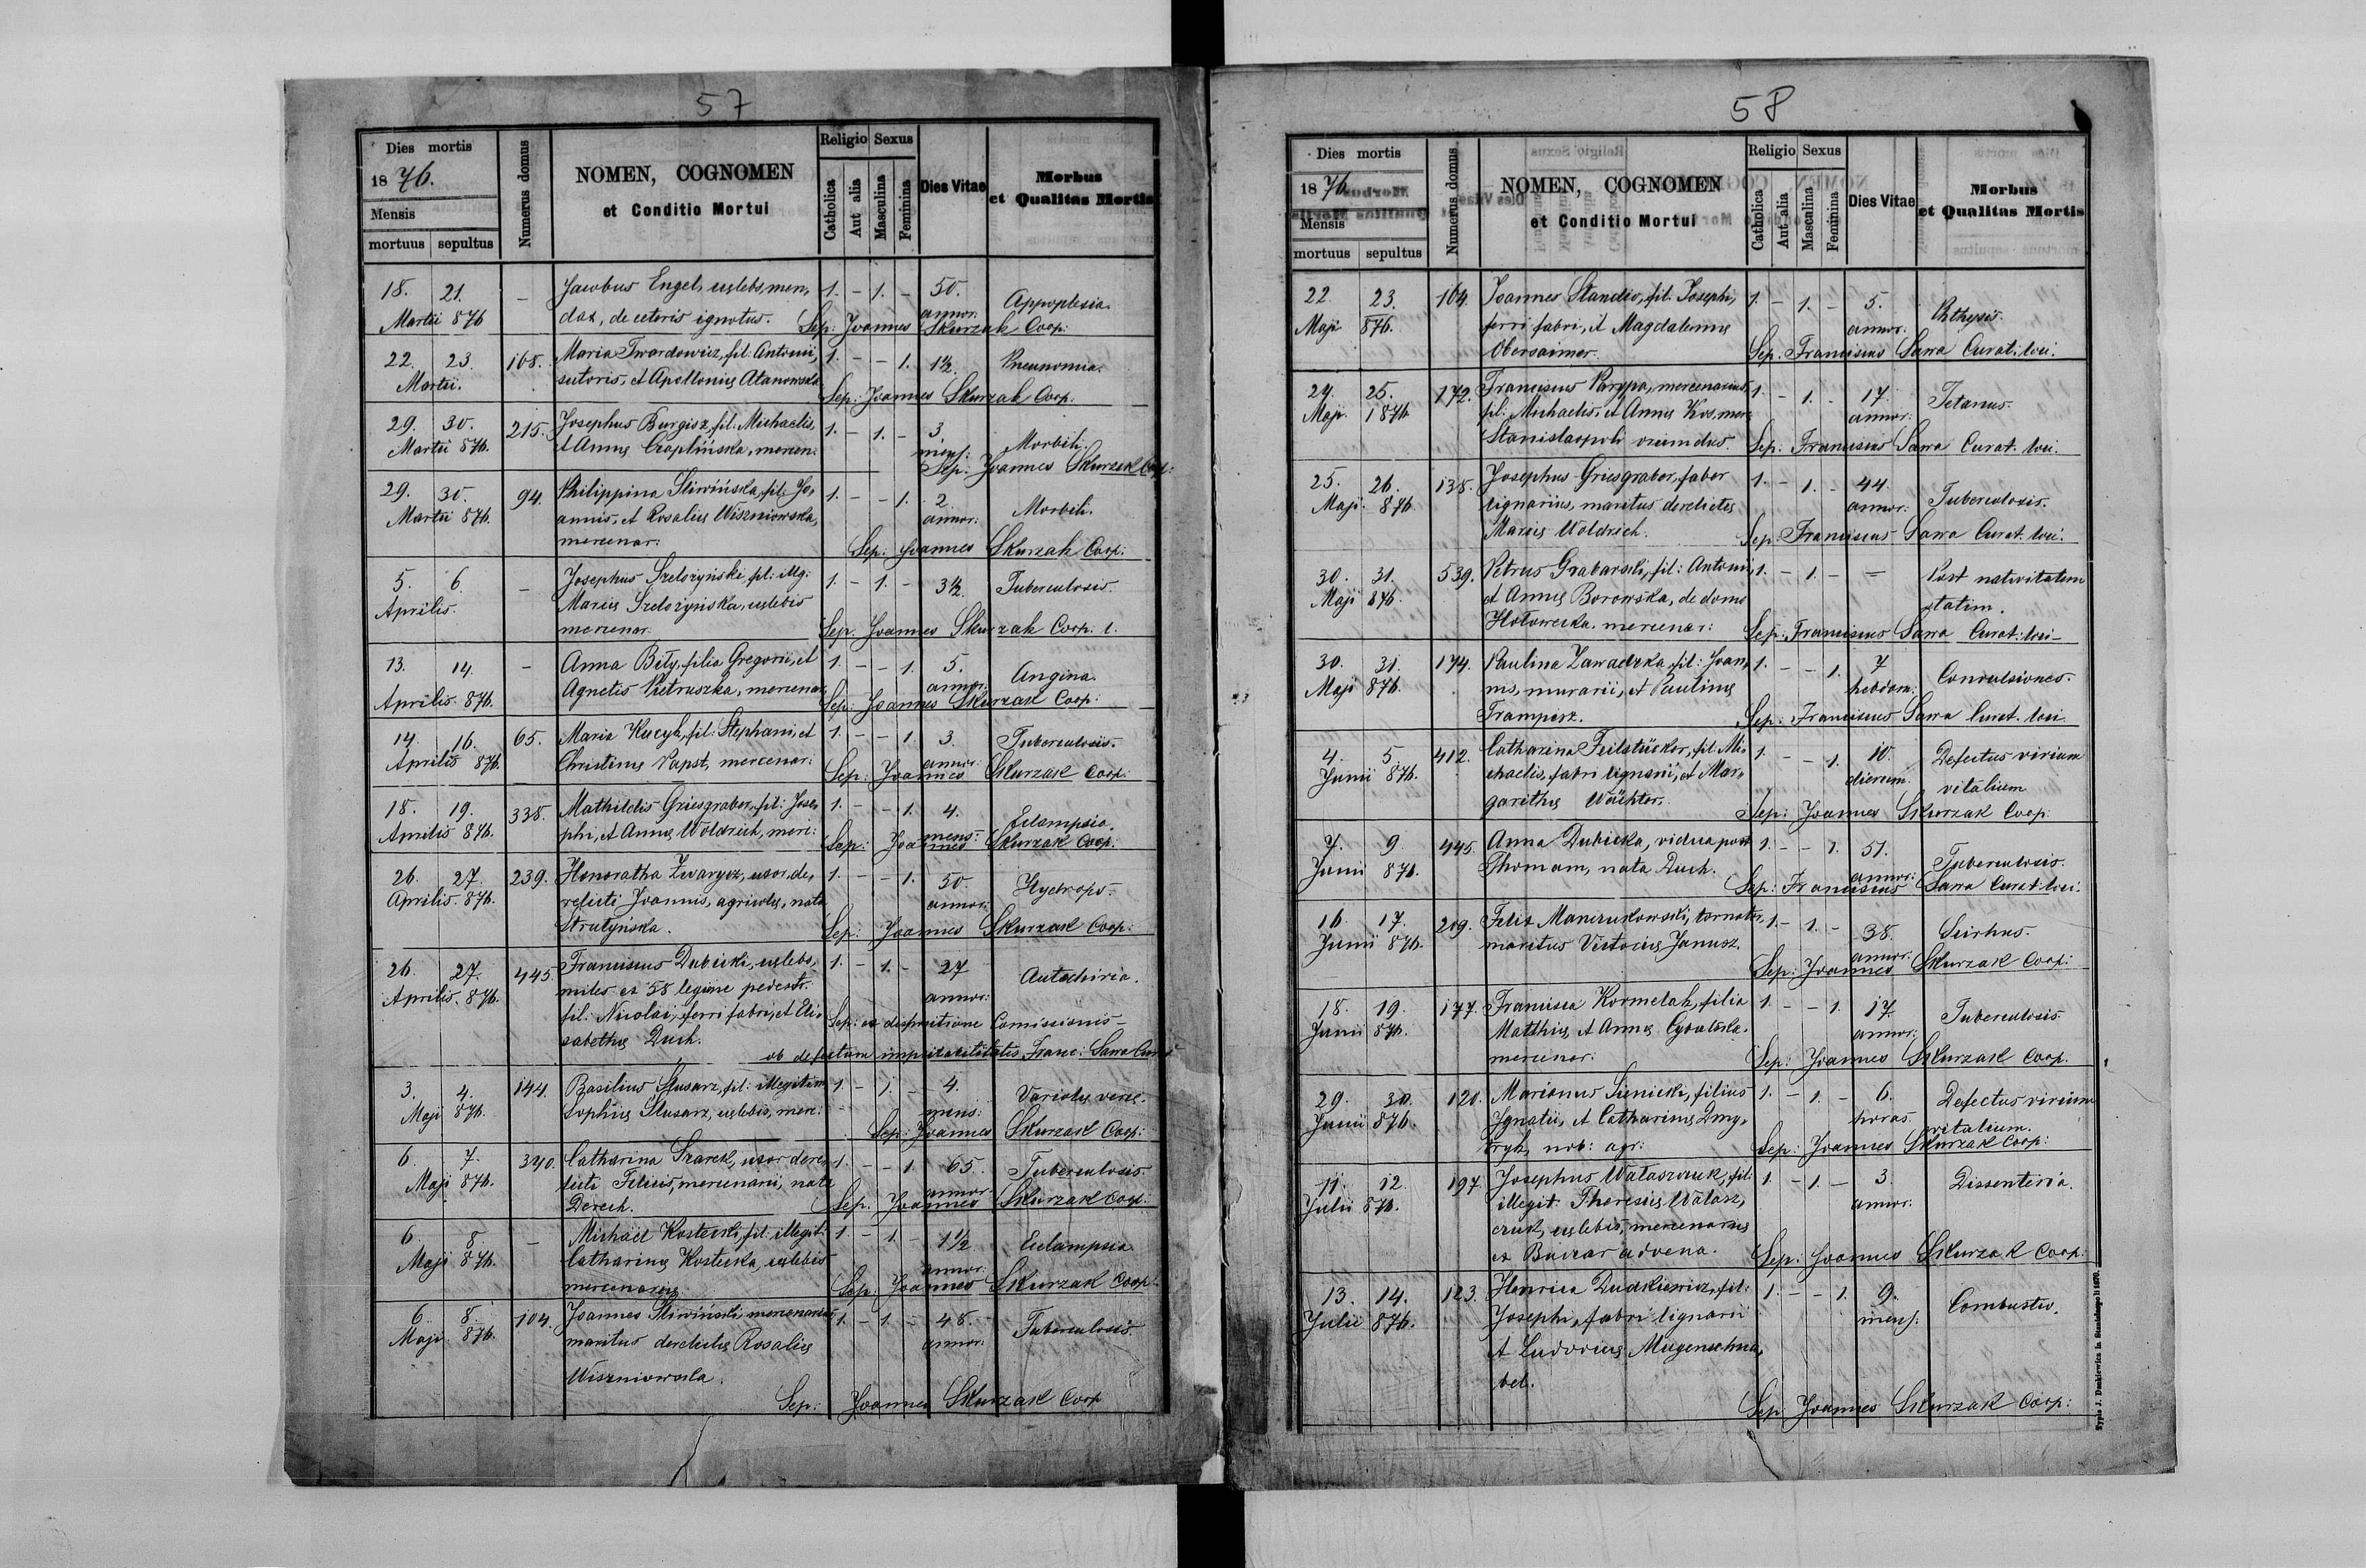 57
Dies mortis
1876.
Mensis
mortuus sepultus
Numerus domus
NOMEN, COGNOMEN
et Conditio Mortui
Religio Sexus
Catholica
Aut alia
Masculina
Feminina
Dies Vitae
Morbus
et Qualitas Mortis
18. 21. – Jacobus Engel, cęlebs, men, 1. – 1. – 50.
Martii 876 dax, de ceteris ignotus. annor: Appoplexia.
Sep: Joannes Skurzak Coop:
22. 23. 168. Maria Twardowicz, fil: Antonii, 1. – – 1. 1½. Pneunomia.
Martii. sutoris, et Apollonię Atanowska
Sep: Joannes Skurzak Coop.
29. 30. 215. Josephus Burgisz, fil: Michaelis, 1. – 1. – 3
Martii 876. et Annę Czaplińska, mercen: mens: Morbili.
Sep: Joannes Skurzak Coop:
29. 30. 94. Philippina Sliwińska, fil: Jo, 1. – – 1. 2.
Martii 876. annis, et Rosalię Wiszniowska, annor: Morbili.
mercenar:
Sep: Joannes Skurzak Coop:
5. 6. – Josephus Szelożyński fil: illeg: 1. – 1. – 3½. Tuberculosis.
Aprilis. Marię Szelożyńska, cęlebis
mercenar.
Sep. Joannes Skurzak Coop. l.
13. 14. – Anna Biły, filia Gregorii, et 1. – – 1. 5.
Aprilis. 876. Agnetis Pietruszka, mercenar, annor. Angina.
Sep: Joannes Skurzak Coop:
14. 16. 65. Maria Kucyk, fil: Stephani, et 1. – – 1. 3. Tuberculosis.
Aprilis 876. Christinę Papst, mercenar: annor:
Sep: Joannes Skurzak Coop:
18. 19. 338. Mathildis Griesgraber, fil: Jose, 1. – – 1. 4.
Aprilis 876. phi, et Annę Woldrich, merc: mens: Eclampsia.
Sep: Joannes Skurzak Coop:
26. 27. 239. Honoratha Zwarycz, uxor, de, 1. – – 1. 50. Hydrops.
Aprilis. 876. relicti Joannis, agricolę, nata annor:
Strutyńska.
Sep: Joannes Skurzak Coop:
26. 27. 445 Franciscus Dubicki, cęlebs, 1. – 1. – 27
Aprilis. 876. miles ex 58 legione pedestr. annor: Autochiria.
fil: Nicolai, ferri fabri, et Eli,
Sep: ex dispositione Comissionis –
sabethę Duch.
ob defectum imputabilitatis Franc: Sawa Curat
3. 4. 144. Basilius Slusarz, fil: illegitim 1 – 1. – 4. Variolę verę.
Maji 876. Sophię Slusarz, cęlebis, merc: mens:
Sep: Joannes Skurzak Coop:
6. 7. 340. Catharina Szarek, uxor dere, 1 – – 1. 65. Tuberculosis.
Maji 876. licti Felicis, mercenarii, nata annor.
Derech.
Sep. Joannes Skurzak Coop:
6. 8. – Michael Kostecki, fil: illegit: 1 – 1. – 1½ Eclampsia
Maji 876. Catharinę Kostecka, cęlebis annor:
mercenarię
Sep. Joannes Skurzak Coop:
6. 8. 104. Joannes Sliwiński, mercenarius, 1. – 1. – 48. Tuberculosis
Maji 876. maritus derelictę Rosalię annor:
Wiszniowska.
Sep: Joannes Skurzak Coop
58
Dies mortis
1876
Mensis
mortuus sepultus
Numerus domus
NOMEN, COGNOMEN
et Conditio Mortui
Religio Sexus
Catholica
Aut alia
Masculina
Feminina
Dies Vitae
Morbus
et Qualitas Mortis
22. 23. 164. Joannes Standio, fil. Josephi, 1. – 1. – 5. Phthysis.
Maji 876. ferri fabri, et Magdalenę annor:
Obersaimer.
Sep. Franciscus Sawa Curat: loci.
24. 25. 172. Franciscus Parypa, mercenarius, 1. – 1. – 17. Tetanus.
Maji. 1876. fil: Michaelis, et Annę Kos, mer: annor:
Stanislaopoli oriundus.
Sep: Franciscus Sawa Curat. loci.
25. 26. 138. Josephus Griesgraber, faber 1. – 1. – 44. Tuberculosis.
Maji. 876. lignarius, maritus derelictę annor:
Marię Woldrich.
Sep: Franciscus Sawa Curat. loci.
30. 31. 539. Petrus Grabarski, fil: Antonii, 1. – 1. – – Post nativitatem
Maji 876. et Annę Borowska, de domo statim.
Hołowecka. mercenar:
Sep: Franciscus Sawa Curat: loci –
30. 31. 174. Paulina Zawadzka, fil: Joan, 1. – – 1. 7 Convulsiones.
Maji 876. nis, murarii, et Paulinę hebdom:
Trampisz.
Sep: Franciscus Sawa Curat. loci.
4. 5. 412. Catharina Feilstücker, fil: Mi, 1 – – 1. 10. Defectus virium
Junii 876. chaelis, fabri lignarii, et Mar, dierum. vitalium
garithę Wächter.
Sep: Joannes Skurzak Coop.
7. 9. 445. Anna Dubicka, vidua post 1 – – 1. 51. Tuberculosis.
Junii 876. Thomam, nata Duch. annor:
Sep: Franciscus Sawa Curat: loci.
16. 17. 209. Felix Manczukowski, tornator, 1 – 1. – 38. Scirhus.
Junii 876. maritus Victorię Janusz. annor:
Sep: Joannes Skurzak Coop:
18. 19. 177. Francisca Kormelak, filia 1. – – 1. 17. Tuberculosis
Junii 876. Matthię, et Annę annor:
mercenar:
Sep: Joannes Skurzak Coop.
29. 30. 120. Marianus Sienicki, filius 1. – 1. – 6. Defectus virium
Junii 876. Ignatii, et Catharinę Dmy, horas. vitalium.
tryk, nob: agr:
Sep: Joannes Skurzak Coop:
11. 12. 197. Josephus Wataszczuk, fil: 1. – 1. – 3. Dissenteria.
Julii 876. illegit: Theresię Watasz, annor:
czuk, cęlebis, mercenarię
ex Buczacz advena.
Sep: Joannes Skurzak Coop:
13. 14. 123. Henrica Dudkiewicz, fil: 1. – – 1. 9. Combustio.
Julii 876. Josephi, fabri lignarii mens:
et Ludovicę Mugenschna,
bel.
Sep Joannes Skurzak Coop:
Typis J. Dankiewicz in Stanislapoli 1870.